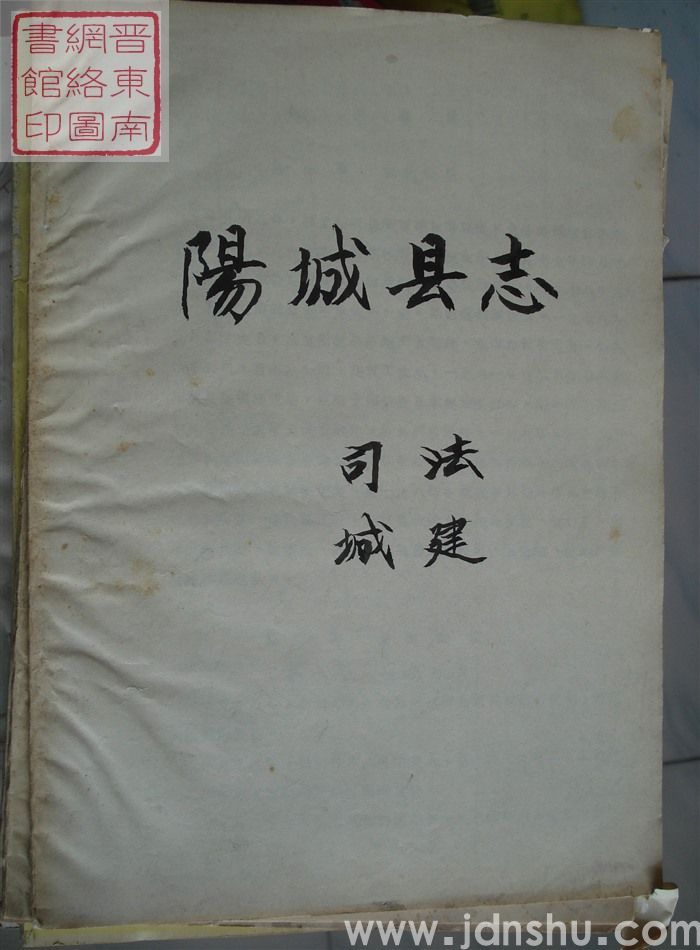 晋東南
網絡圖
書館印
陽城县志
司法
城建
www.jdnshu.com